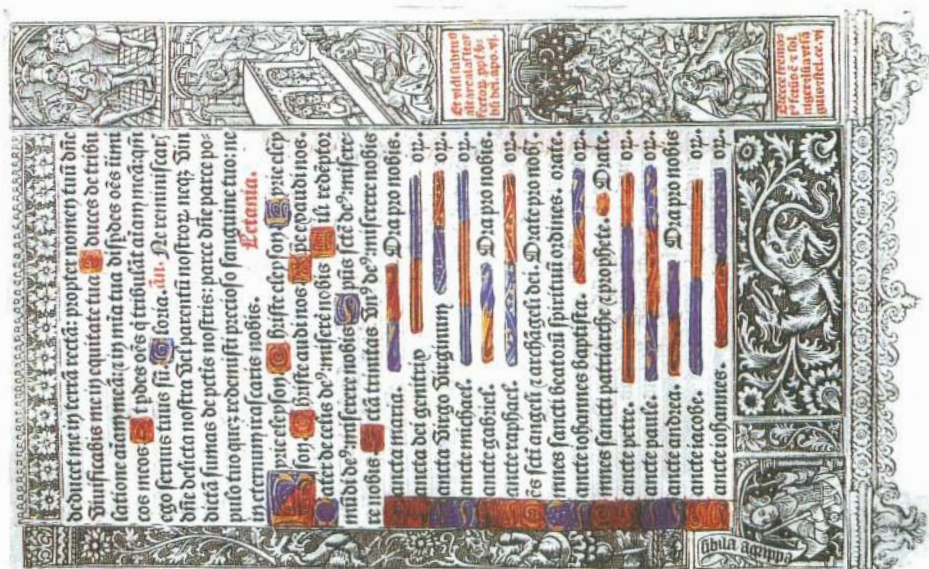 deducet me in terrā rectā: propter nomen tuū dñe
viuificabis me in equitate tua. duces de tribu
latione aīam meā: ⁊ in mīa tua dispdes oēs inimi
cos meos. pdes oēs q̄ tribulāt aīam meā: qm̄
ego seruus tuus sū. Gloria. ān. Ne reminiscar̄
dñe delicta nostra vel parentū nostroꝝ: neqꝫ vin
dictā sumas de pctis nostris: parce dñe parce po-
pulo tuo quē redemisti precioso sanguine tuo: ne
in eternum irascaris nobis. Letania.
yrie eleyson. christe eleyson. yrie eley
son. christe audi nos. pe exaudi nos.
ater de celis de⁹: miserē nobis. ili redēptor
mūdi de⁹: miserere nobis. pūs scē de⁹: misere-
re nobis. ctā trinitas vn⁹ de⁹: miserere nobis
ancta maria. Ora pro nobis.
ancta dei genitrix oꝝ.
ancta virgo virginum oꝝ.
ancte michael. oꝝ.
ancte gabriel. Ora pro nobis
ancte raphael. oꝝ.
ēs scti angeli ⁊ archāgeli dei. Orate pro nob̄.
mnes sancti beatorū spirituū ordines. orate.
ancte iohannes baptista. oꝝ.
mnes sancti patriarche ⁊ prophete. Orate.
ancte petre. oꝝ.
ancte paule. oꝝ.
ancte andrea. Ora pro nobis
ancte iacobe. oꝝ.
ancte iohannes. oꝝ.
Et vidi subtus
altare aīas inter
fectoꝝ
apo. vj.
Et ecce tremor
fctus ē ⁊ sol
niger
sibila agrippa